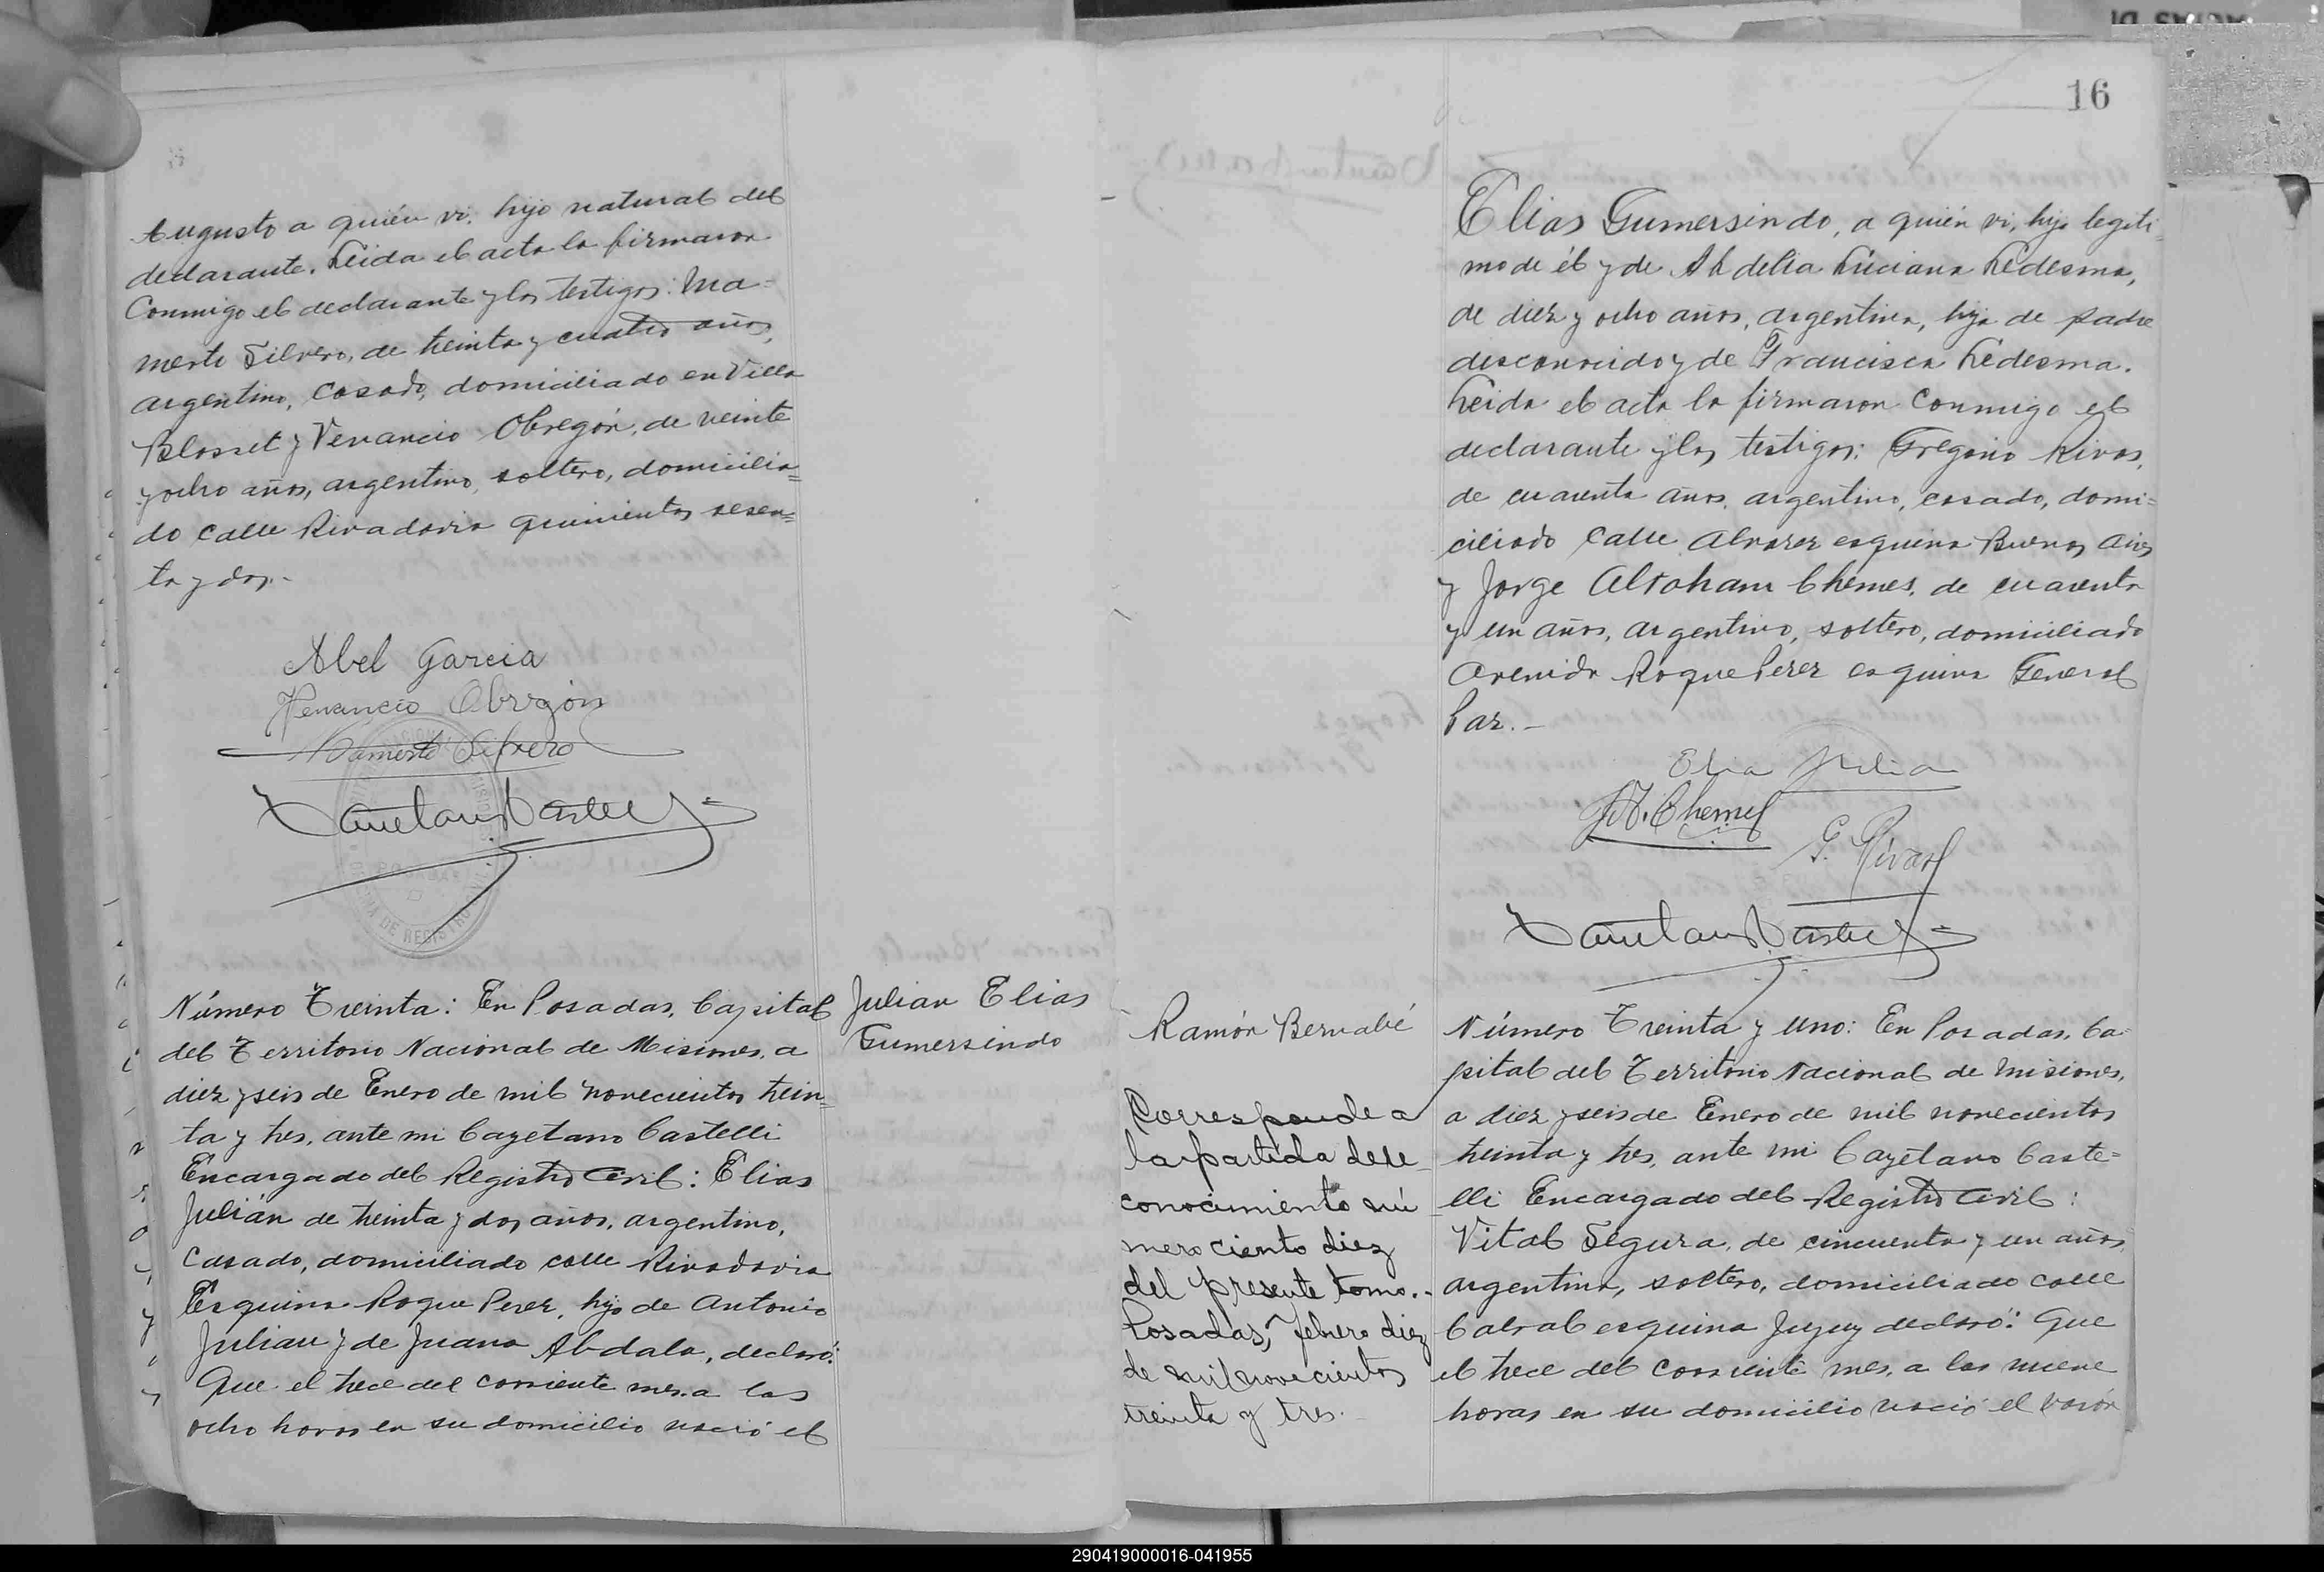 Augusto a quién vi, hijo natural del
declarante. Leida el acta la firmaron
Conmigo el declarante y los testigos: Ma=
merto Silvero, de treinta y cuatro años,
argentino, casado, domiciliado en Villa
Blosset y Venancio Obregón, de veinte
y ocho años, argentino, soltero, domicilia=
do calle Rivadavia quinientos sesen=
ta y dos.-
Abel Garcia
Venancio Obregón
Mamerto Silvero
Número Treinta: En Posadas, Capital
del Territorio Nacional de Misiones, a
diez y seis de Enero de mil novecientos trein=
ta y tres, ante mi Cayetano Castelli
Encargado del Registro Civil: Elias
Julián de treinta y dos años, argentino,
casado, domiciliado calle Rivadavia
Esquina Roque Perez, hijo de Antonio
Julian y de Juana Abdala, declaró:
Que el trece del corriente mes, a las
ocho horas en su domicilio nació el
Julian Elias
Gumersindo
16
Elias Gumersindo, a quién vi, hijo legiti=
mo de él y de Abdelia Luciana Ledesma,
de diez y ocho años, argentina, hija de padre
desconocido y de Francisca Ledesma.
Leida el acta la firmaron Conmigo el
declarante y los testigos: Gregorio Rivas,
de cuarenta años, argentino, casado, domi=
ciliado Calle Alvarez esquina Buenos Aires
y Jorge Abraham Chemes, de cuarenta
y un años, argentino, soltero, domiciliado
Avenida Roque Perez esquina General
Paz.-
Elia Julian
J.A. Chemes
G. Rivas
Ramón Bernabé
Corresponde a
la partida de re-
conocimiento nú-
mero ciento diez
del presente tomo.-
Posadas, febrero diez
de mil novecientos
treinta y tres.
Número Treinta y uno: En Posadas, Ca=
pital del Territorio Nacional de Misiones,
a diez y seis de Enero de mil novecientos
treinta y tres, ante mi Cayetano Caste=
lli Encargado del Registro Civil:
Vital Segura, de cincuenta y un años,
argentino, soltero, domiciliado calle
Cabral esquina Jujuy declaró: Que
el trece del corriente mes, a las nueve
horas en su domicilio nació el varón
290419000016-041955